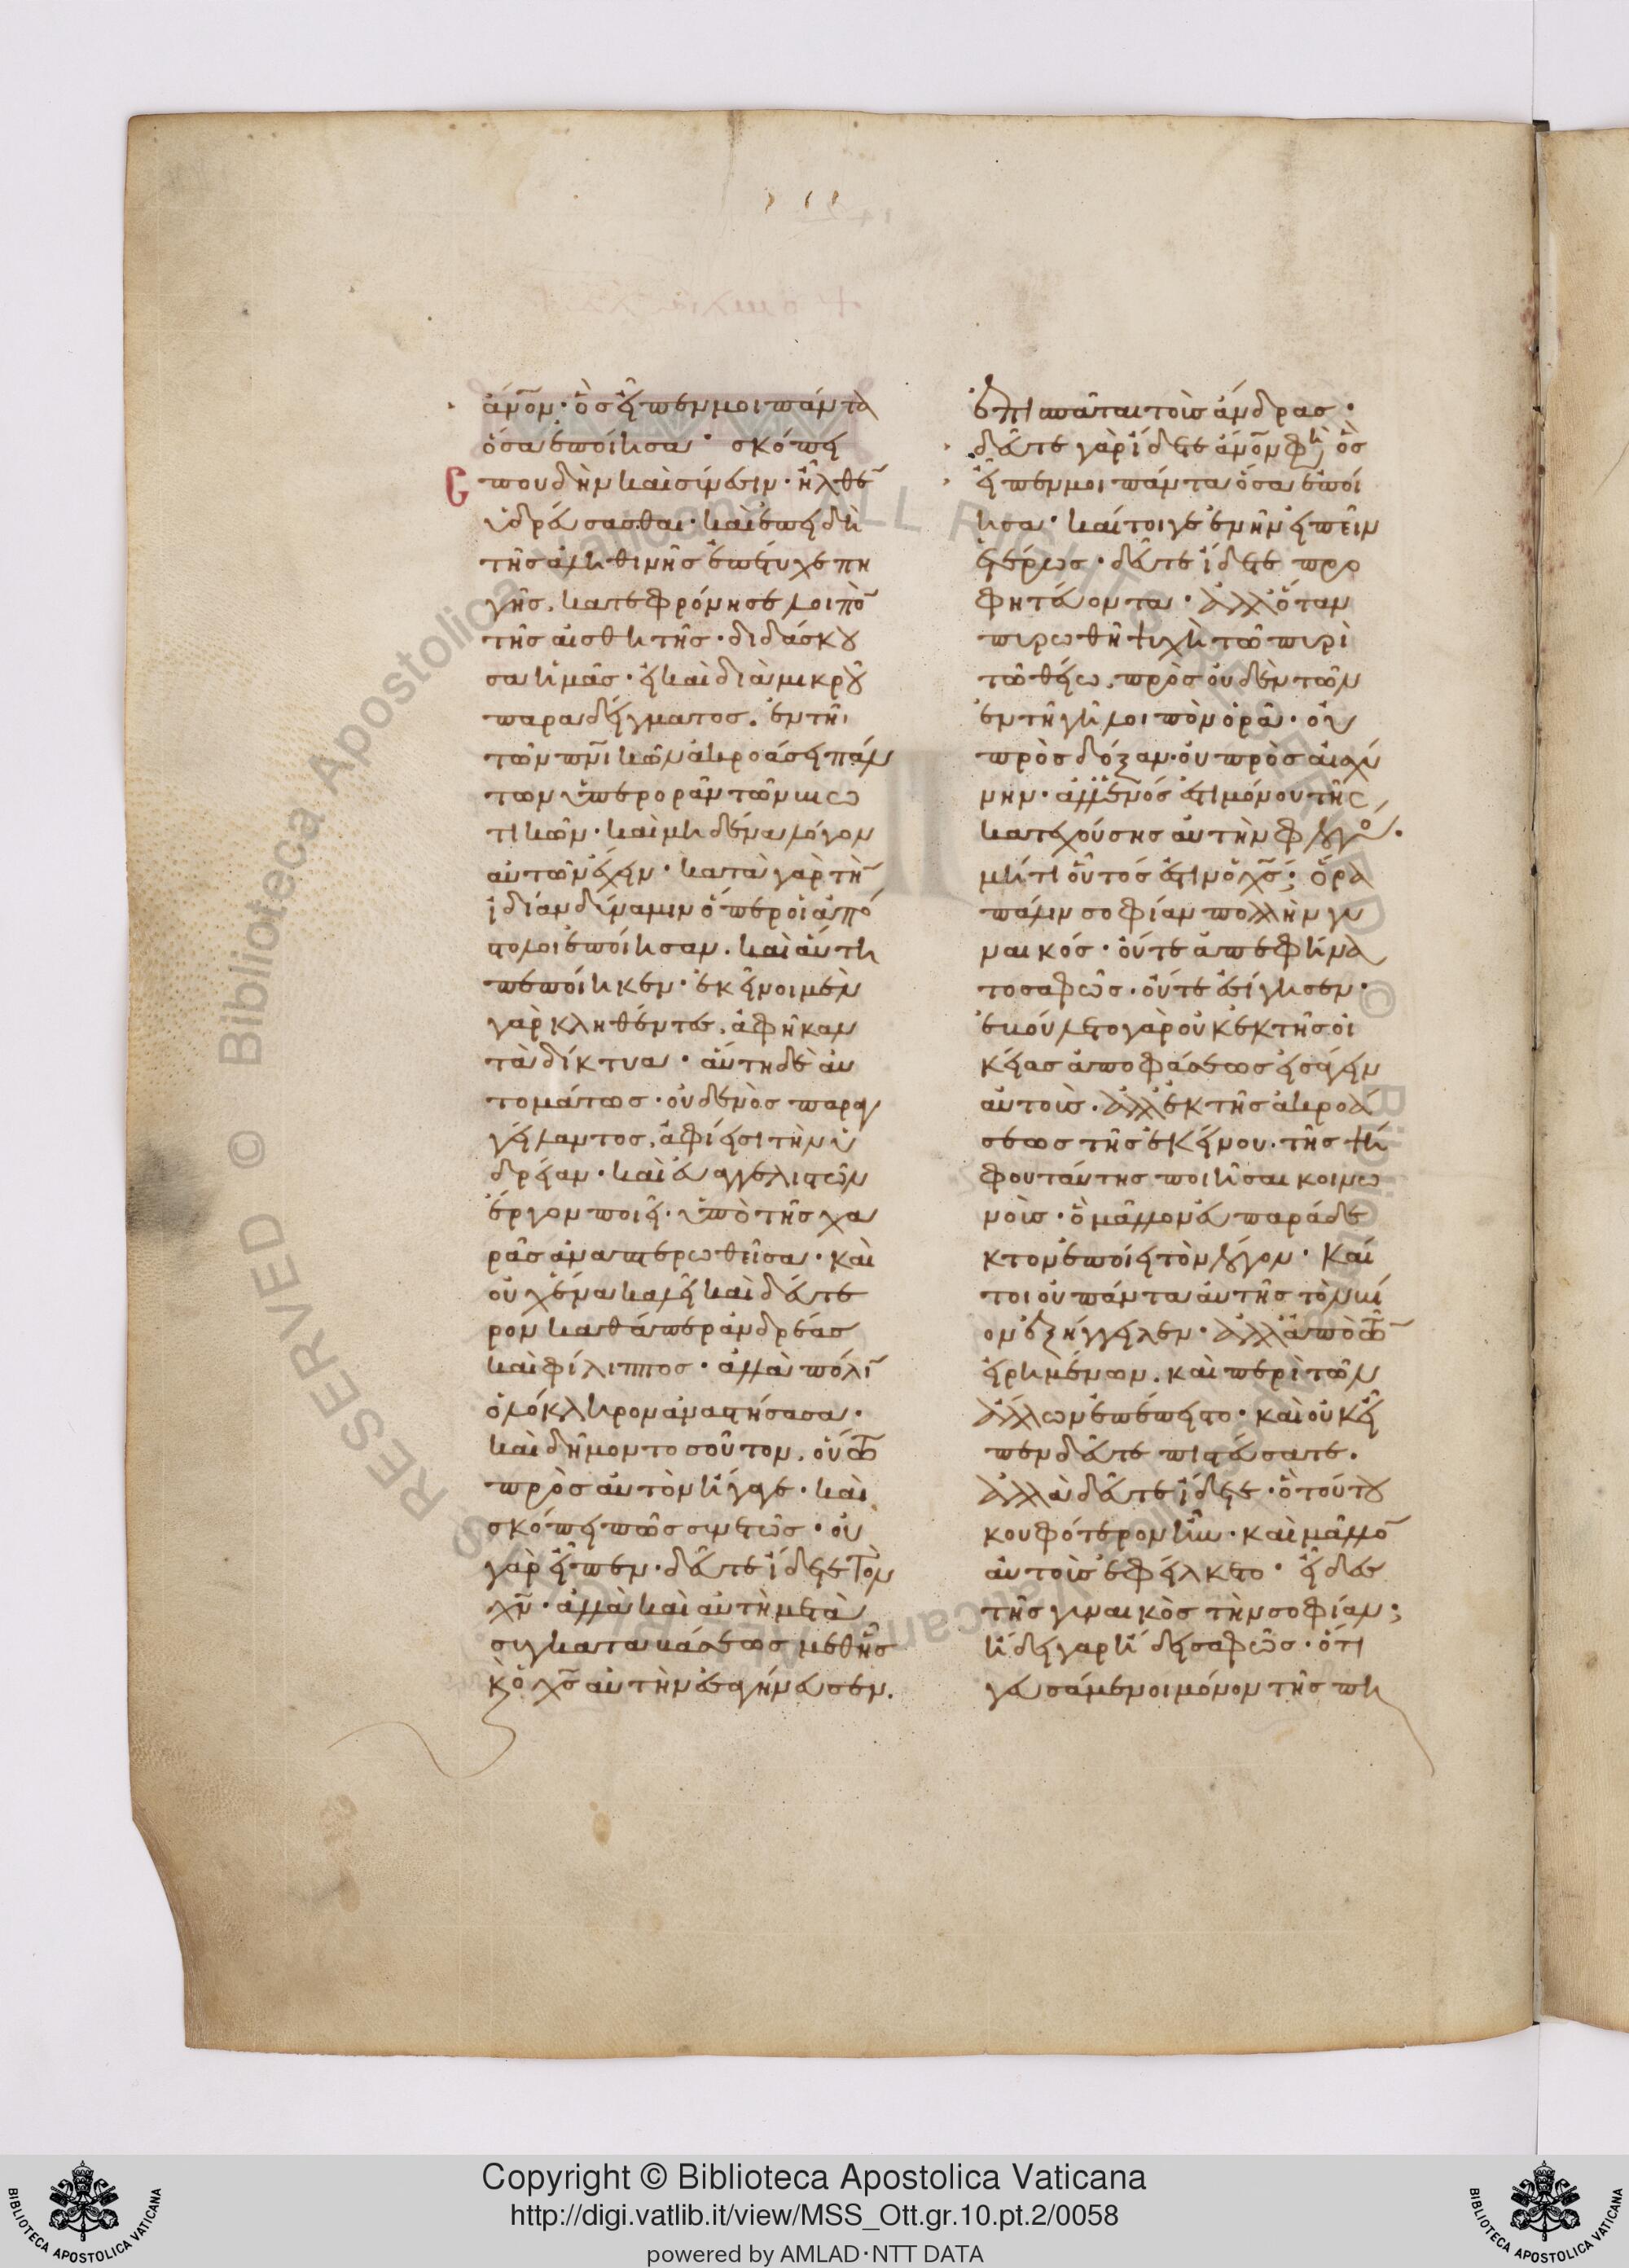 ἀν̅ον· ὃς εἶπεν μοι πάντα
ὅσα ἐποίησα· σκόπει
σπουδὴν καὶ σύνεσιν· ἦλθε̅
ὑδρεύσασθαι· καὶ ἐπειδὴ
τῆς ἀληθινῆς ἐπέτυχε πη
γῆς, κατεφρόνησε λοιπὸ̅
τῆς αἰσθητῆς· διδάσκου
σα ἡμᾶς· εἰ καὶ διὰ μικροῦ
παραδείγματος. ἐν τῆι
τῶν πν̅ικῶν ἀκροάσει πάν
των ὑπερορᾶν τῶν βιω
τικῶν· καὶ μηδένα λόγον
αὐτῶν ἔχειν· κατὰ γὰρ τὴ̅
ἰδίαν δύναμιν ὅπερ οἱ ἀπό
στολοι ἐποίησαν. καὶ αὕτη
πεποίηκεν· ἐκεῖνοι μὲν
γὰρ κληθέντες, ἀφῆκαν
τὰ δίκτυα· αὕτη δὲ αὐ
τομάτως· οὐδενὸς παραγ
γείλαντος, ἀφίησι τὴν ὑ
δρείαν· καὶ εὐαγγελιστῶν
ἔργον ποιεῖ· ὑπὸ τῆς χα
ρᾶς ἀναπτερωθεῖσα· καὶ
οὐχ ἕνα καλεῖ καὶ δεύτε
ρον καθάπερ ἀνδρέας
καὶ φίλιππος· ἀλλὰ πόλι̅
ὁλόκληρον ἀναστήσασα·
καὶ δῆμον τοσοῦτον, οὕτω
πρὸς αὐτὸν ἤγαγε· καὶ
σκόπει πῶς συνετῶς· οὐ
γὰρ εἶπεν· δεῦτε ἴδετε τὸν
χν̅· ἀλλὰ καὶ αὐτὴ μετὰ
συγκαταβάσεως μεθ' ἧς
κ(αὶ) ὁ χς̅ αὐτὴν ἐσαγήνευσεν.
ἐπισπᾶται τοὺς ἄνδρας·
δεῦτε γὰρ ἴδετε ἀν̅ον φη(σὶν) ὃς
εἶπεν μοι πάντα ὅσα ἐποί
ησα· καίτοιγε ἐνῆν εἰπεῖν
ἑτέρως· δεῦτε ἴδετε προ
φητεύοντα· ἀλλ' ὅταν
πυρωθῆ ψυχὴ τῶ πυρὶ
τῶ θείω, πρὸς οὐδὲν τῶν
ἐν τῆ γῆ λοιπὸν ὁρᾶ· οὐ
πρὸς δόξαν· οὐ πρὸς αἰσχύ
νην· ἀλλ' ἑνός ἐστι μόνου τῆς
κατεχούσης αὐτὴν φλογό(ς).
μήτι οὗτός ἐστιν ὁ χς̅; ὅρα
πάλιν σοφίαν πολλὴν γυ
ναικός· οὔτε ἀπεφήνα
το σαφῶς. οὔτε ἐσίγησεν·
ἐβούλετο γὰρ οὐκ ἐκ τῆς οἰ
κείας ἀποφάσεως εἰσάγειν
αὐτούς. ἀλλ' ἐκ τῆς ἀκροά
σεως τῆς ἐκείνου. τῆς ψή
φου ταύτης ποιῆσαι κοινω
νούς· ὃ μᾶλλον εὐπαράδε
κτον ἐποίει τὸν λόγον· καί
τοι οὐ πάντα αὐτῆς τὸν βί
ον ἐξήγγειλεν· ἀλλ' ἀπὸ τῶ̅
εἰρημένων. καὶ περὶ τῶν
ἄλλων ἐπέπειστο· καὶ οὐκ εἶ
πεν δεῦτε πιστεύσατε.
ἀλλὰ δεῦτε ἴδετε· ὃ τούτου
κουφότερον ἦν· καὶ μᾶλλο̅
αὐτοὺς ἐφείλκετο· εἶδες
τῆς γυναικὸς τὴν σοφίαν;
ἤδει γὰρ ἤδει σαφῶς· ὅτι
γευσάμενοι μόνον τῆς πη
Copyright © Biblioteca Apostolica Vaticana
http://digi.vatlib.it/view/MSS_Ott.gr.10.pt.2/0058
powered by AMLAD·NTT DATA